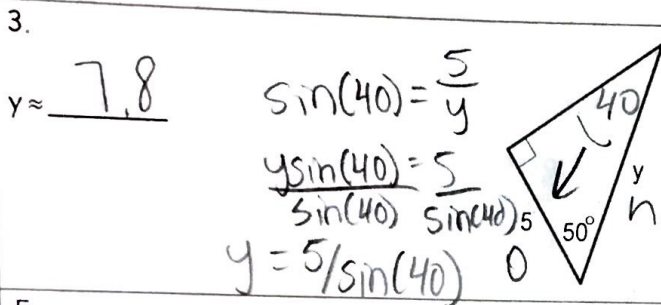 3.
y ≈ 7.8
sin(40) = 5/y
ysin(40)/sin(40) = 5/sin(40)
y = 5/sin(40)
40
y
h
5
50°
O